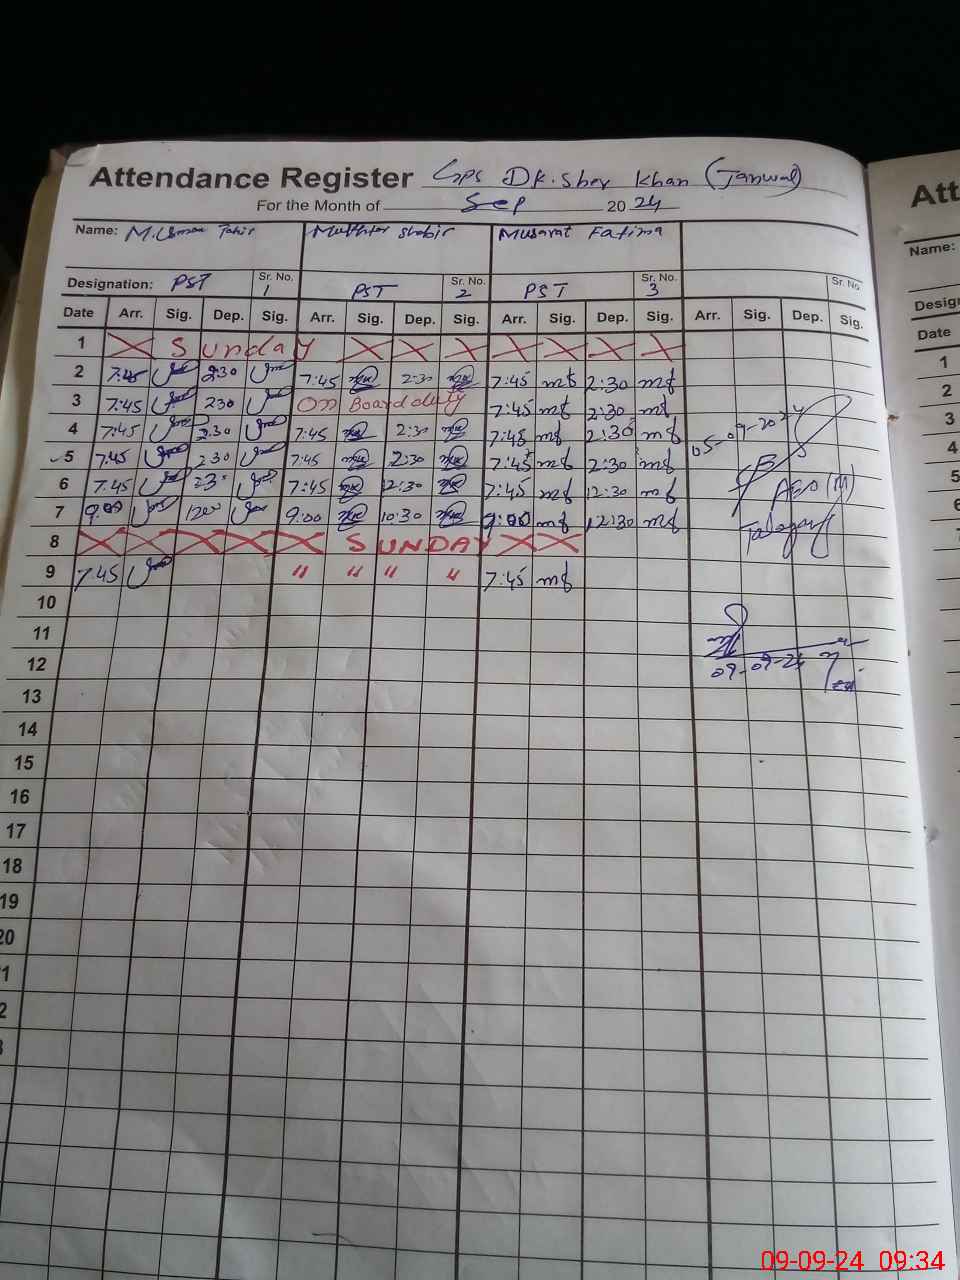 Attendance Register GPS DK. Sher Khan (Janwal)
For the Month of Sep 2024
Name: M. Usman Tahir Mukhtar Shabir Musarat Fatima
Designation: PST Sr. No. 1 PST Sr. No. 2 PST Sr. No. 3 Sr. No.
Date Arr. Sig. Dep. Sig. Arr. Sig. Dep. Sig. Arr. Sig. Dep. Sig. Arr. Sig. Dep. Sig.
1 Sunday
2 7:45 2:30 7:45 2:30 7:45 mf 2:30 mf
3 7:45 230 On Board duty 7:45 mf 2:30 mf
4 7:45 2:30 7:45 2:30 7:45 mf 2:30 mf
5 7:45 230 7:45 2:30 7:45 mf 2:30 mf
6 7:45 7:45 12:30 7:45 mf 12:30 mf
7 9:00 1200 9:00 10:30 9:00 mf 12:30 mf
8 SUNDAY
9 7:45 " " " " 7:45 mf
10
11
12
13
14
15
16
17
18
19
20
05-09-2024
AEO (M)
Talagang
09-09-24
Att
Name:
Desig
Date
1
2
3
4
5
6
09-09-24 09:34